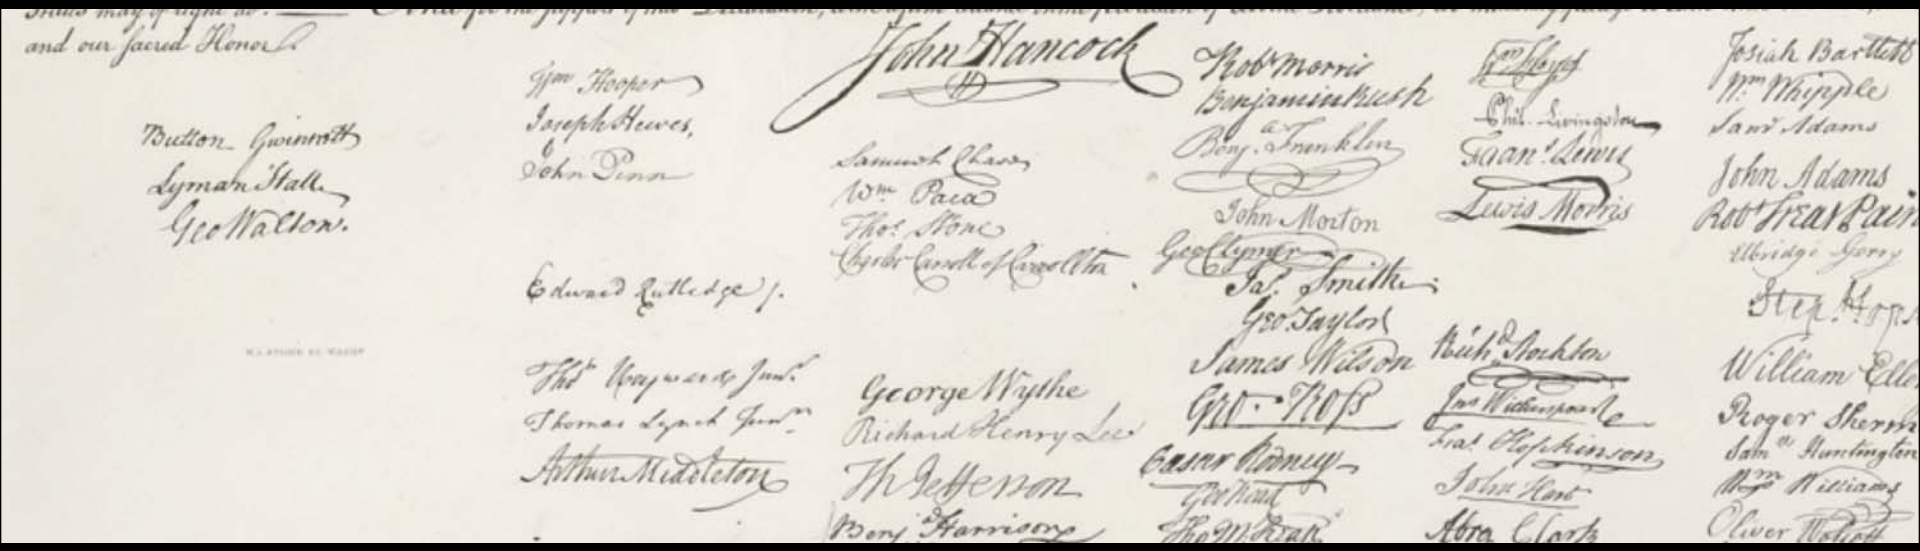 and our sacred Honor.
Button Gwinnett
Lyman Hall
Geo Walton.
W.J. STONE SC. WASHN
Wm Hooper
Joseph Hewes,
John Penn
Edward Rutledge /.
Thos Heyward Junr.
Thomas Lynch Junr.
Arthur Middleton
John Hancock
Samuel Chase
Wm. Paca
Thos. Stone
Charles Carroll of Carrollton
George Wythe
Richard Henry Lee
Th Jefferson
Benj Harrison
Robt Morris
Benjamin Rush
Benja. Franklin
John Morton
Geo Clymer
Jas. Smith
Geo. Taylor
James Wilson
Geo. Ross
Caesar Rodney
Geo Read
Tho M:Kean
Wm Floyd
Phil. Livingston
Frans. Lewis
Lewis Morris
Richd. Stockton
Jno Witherspoon
Fras. Hopkinson
John Hart
Abra Clark
Josiah Bartlett
Wm. Whipple
Saml Adams
John Adams
Robt Treat Pain
Elbridge Gerry
Step. Hop
William Elle
Roger Sherm
Sam Huntington
Wm. Williams
Oliver Wolcott